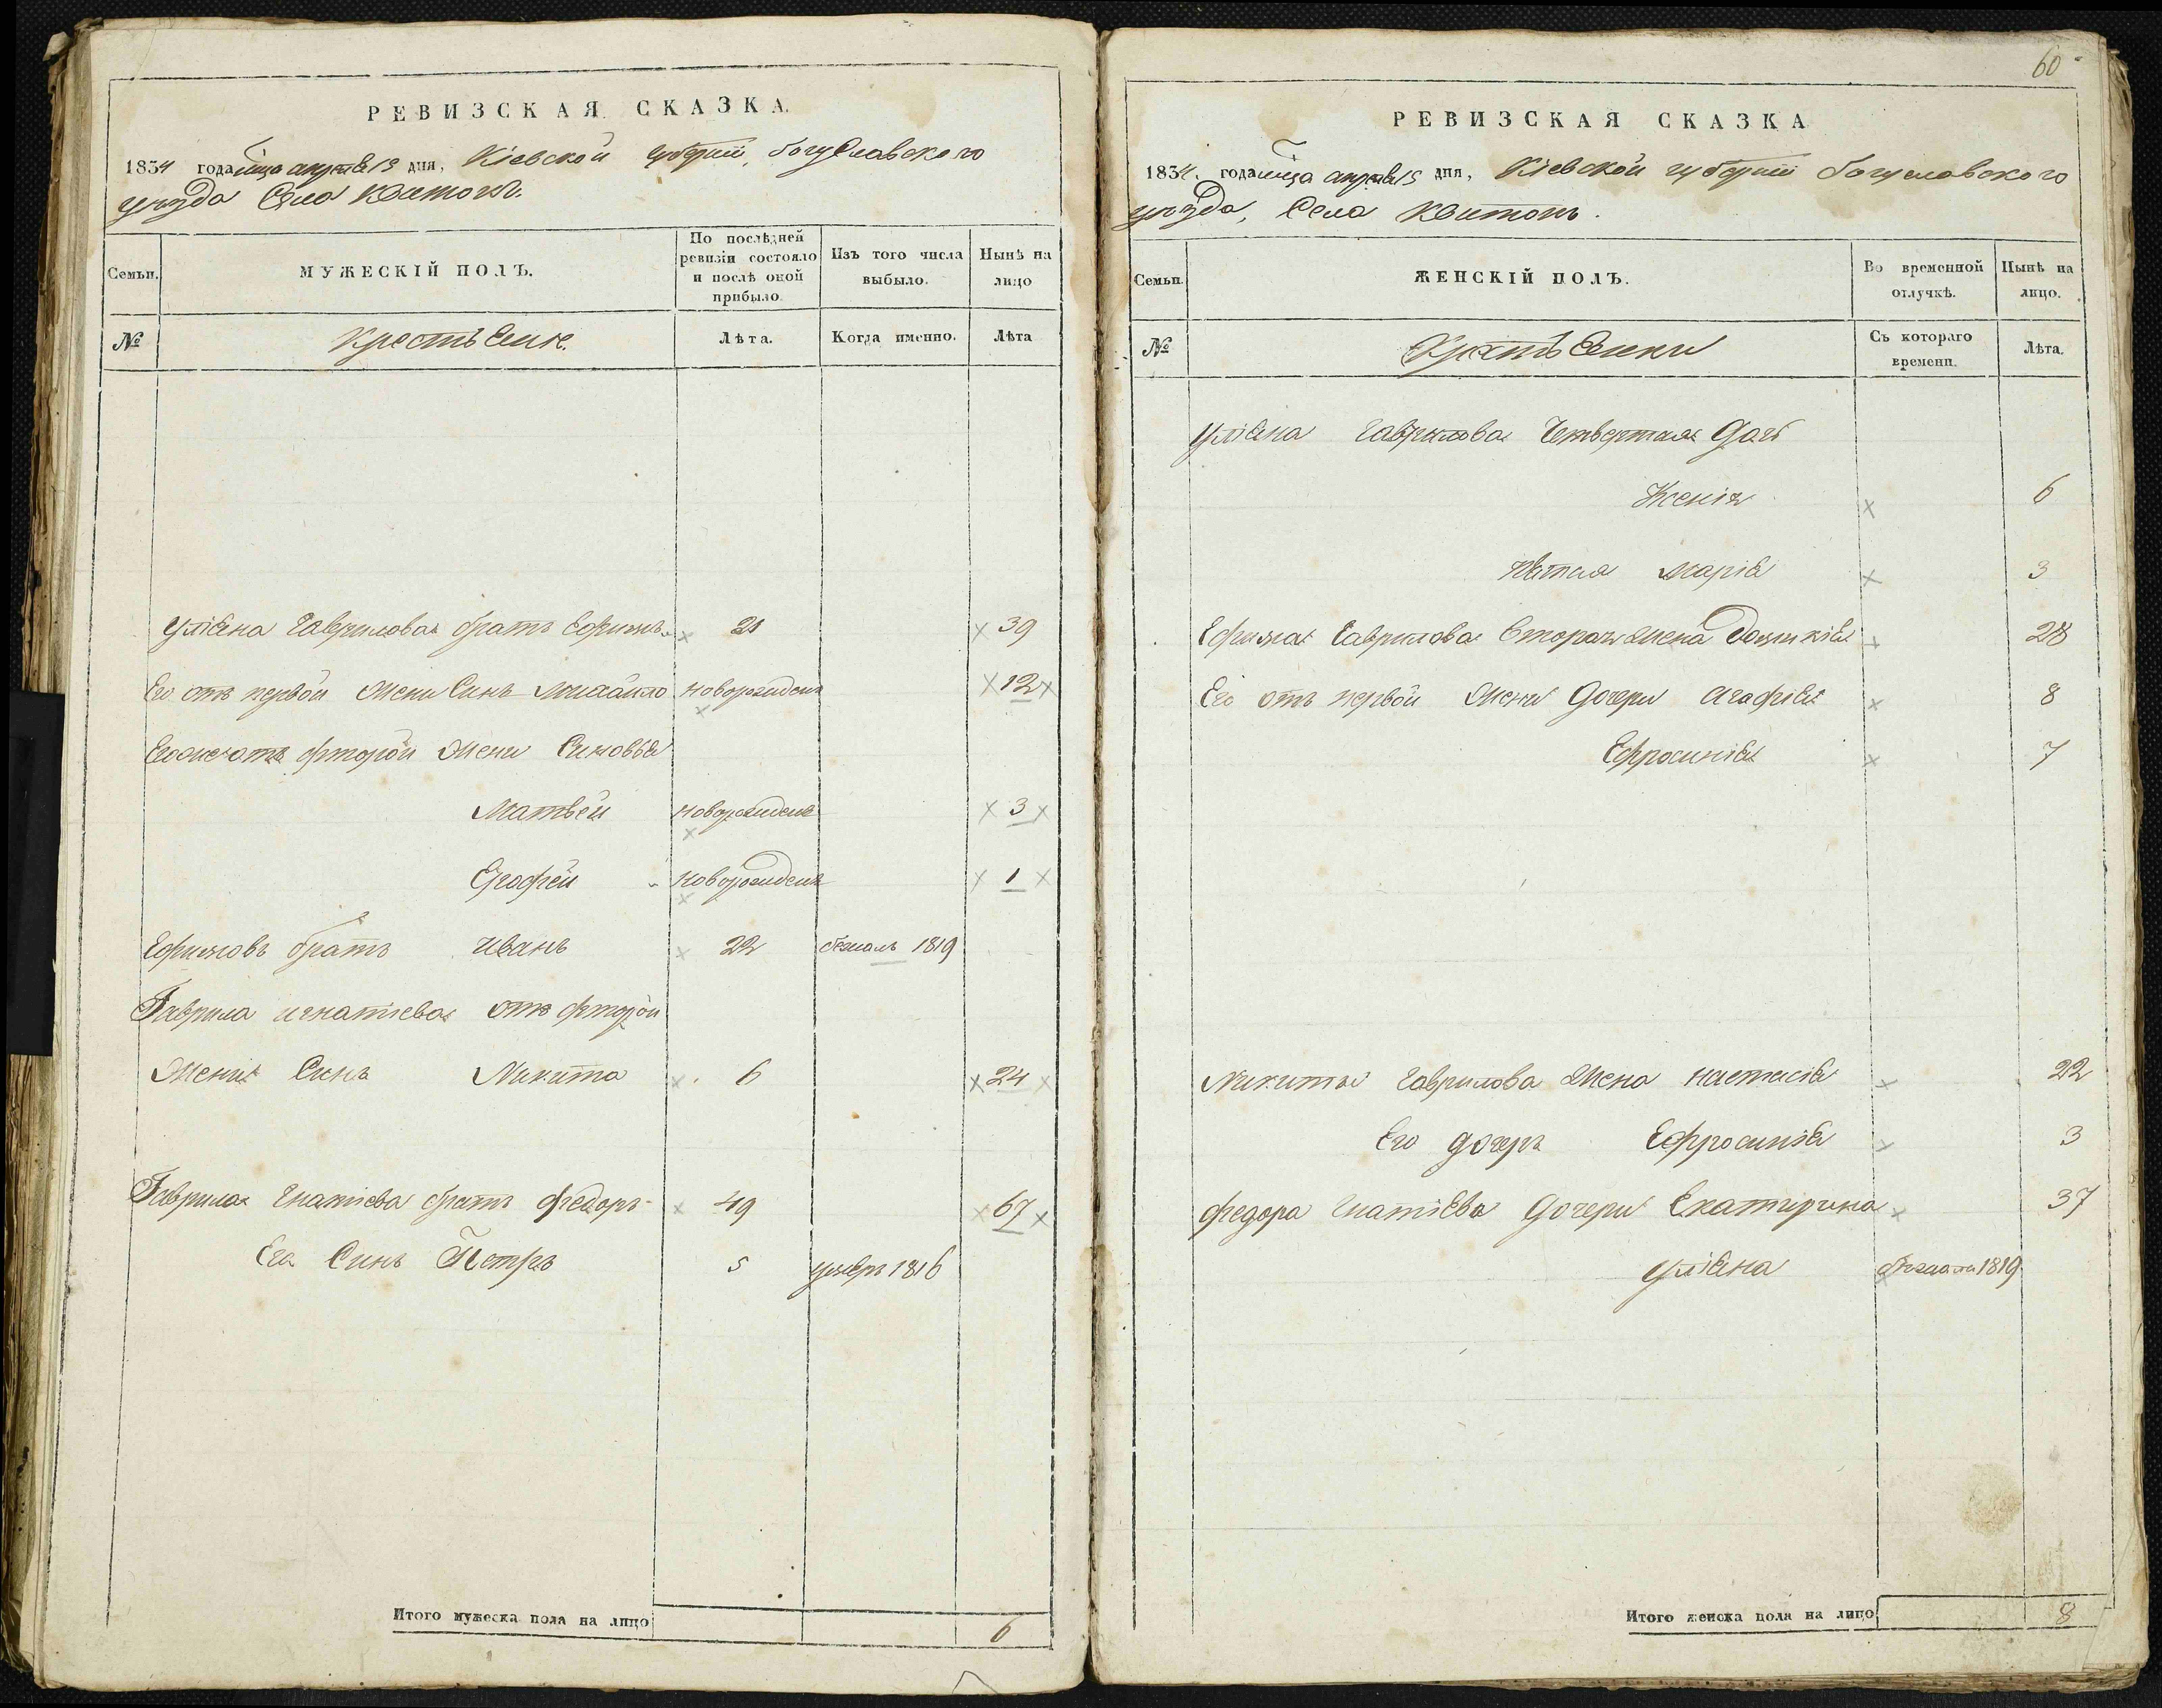 РЕВИЗСКАЯ СКАЗКА
1834 года мца апреля 15 дня, Кіевской губерніи, богуславского
уезда Села Квитокъ.
Семьи.
МУЖЕСКІЙ ПОЛЪ.
По послѣдней ревизіи состояло и послѣ оной прибыло.
Изъ того числа выбыло.
Нынѣ на лицо
№
Крестьяне.
Лѣта.
Когда именно.
Лѣта
Уліяна Гаврилова братъ Ефимъ 21 39
Его отъ первой Жени Синъ Михайло новорожденъ 12
Его же отъ фторой Жени Синовья
Матвей новорожденъ 3
Ерофей новорожденъ 1
Ефимовъ братъ иванъ 22 бежалъ 1819
Гаврила игнатіева отъ фторой
Жени Синъ Микита 6 24
Гаврила Гнатіева братъ федоръ 49 67
Его Синъ Петръ 5 умеръ 1816
Итого мужеска пола на лицо 6
60
РЕВИЗСКАЯ СКАЗКА
1834. года мца апреля 15 дня, Кіевской губерніи богуславского
уезда, Села Квитокъ.
Семьи.
ЖЕНСКІЙ ПОЛЪ.
Во временной отлучкѣ.
Нынѣ на лицо.
№
Крестьянки
Съ котораго времени.
Лѣта.
Уліяна Гаврилова Четвертая дочь
Ксенія 6
Пятая Марія 3
Ефима Гаврилова Вторая Жена Домникія 28
Его отъ первой Жени дочери Агафія 8
Ефросинія 7
Микиты Гаврилова Жена настасія 22
Его дочеръ Ефросинія 3
федора Гнатіева дочери Екатирина 37
Уліяна бежала 1819
Итого женска пола на лицо 8